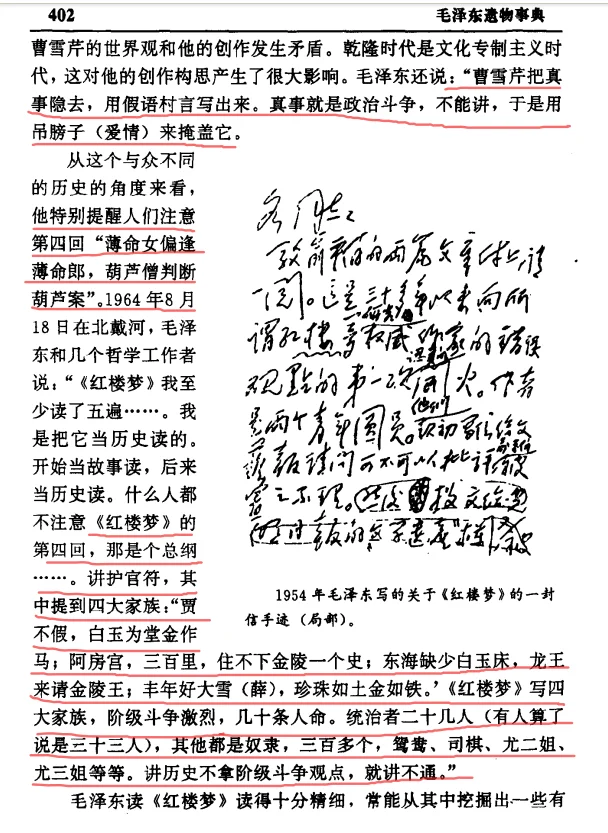 402
毛泽东遗物事典
曹雪芹的世界观和他的创作发生矛盾。乾隆时代是文化专制主义时
代，这对他的创作构思产生了很大影响。毛泽东还说：“曹雪芹把真
事隐去，用假语村言写出来。真事就是政治斗争，不能讲，于是用
吊膀子（爱情）来掩盖它。
从这个与众不同
的历史的角度来看，
他特别提醒人们注意
第四回“薄命女偏逢
薄命郎，葫芦僧判断
葫芦案”。1964年8月
18日在北戴河，毛泽
东和几个哲学工作者
说：“《红楼梦》我至
少读了五遍……。我
是把它当历史读的。
开始当故事读，后来
当历史读。什么人都
不注意《红楼梦》的
第四回，那是个总纲
……。讲护官符，其
中提到四大家族：“贾
不假，白玉为堂金作
各同志：
俞平伯的两篇文章付上，请
一阅。这是三十多年以来向所
谓红楼梦研究权威作家的错误
观点的第一次认真的开火。作者
是两个青年团员。他们起初写信给文
艺报请问可不可以批评俞平伯，被
置之不理。
1954年毛泽东写的关于《红楼梦》的一封
信手迹（局部）。
马；阿房宫，三百里，住不下金陵一个史；东海缺少白玉床，龙王
来请金陵王；丰年好大雪（薛），珍珠如土金如铁。’《红楼梦》写四
大家族，阶级斗争激烈，几十条人命。统治者二十几人（有人算了
说是三十三人），其他都是奴隶，三百多个，鸳鸯、司棋、尤二姐、
尤三姐等等。讲历史不拿阶级斗争观点，就讲不通。”
毛泽东读《红楼梦》读得十分精细，常能从其中挖掘出一些有